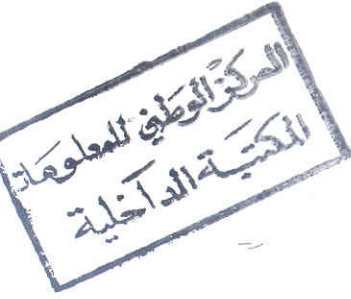 المركز الوطني للمعلومات
المكتبة الداخلية